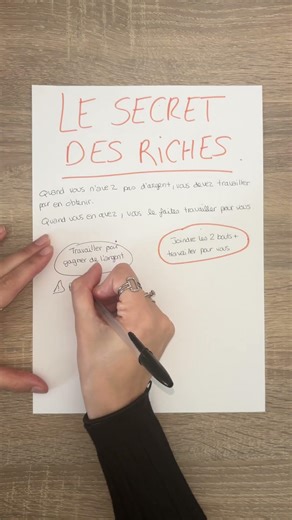 LE SECRET
DES RICHES.
Quand vous n'avez pas d'argent, vous devez travailler
par en obtenir.
Quand vous en avez, vous le faites travailler pour vous
Travailler pour
gagner de l'argent
Joindre les 2 bouts +
travailler pour vous